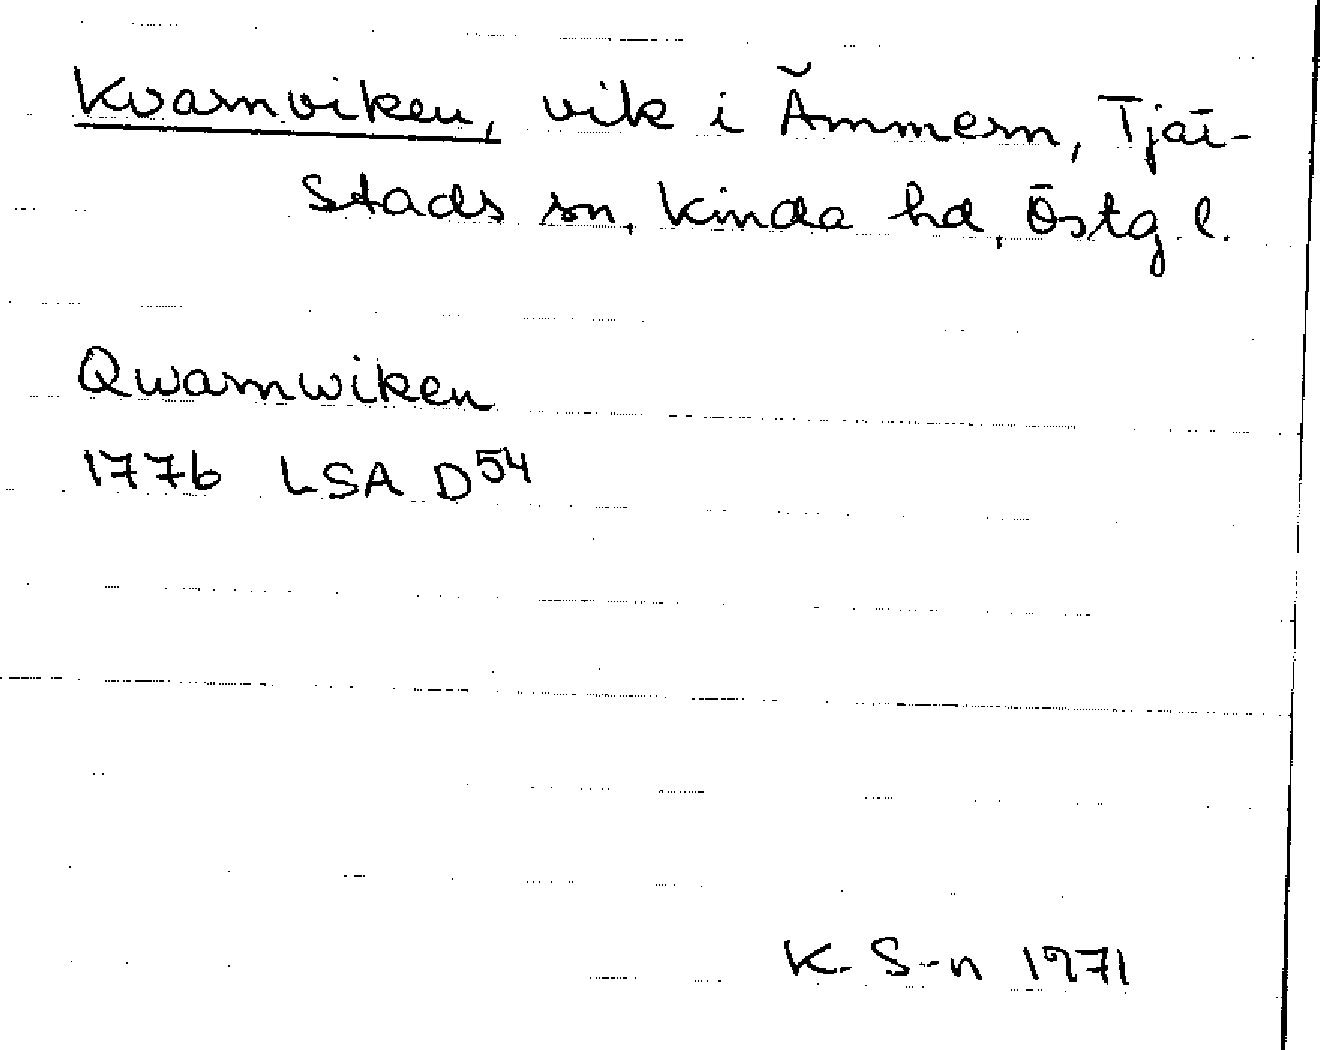 Kvarnviken, vik i Ämmern, Tjär-
stads sn, Kinda hd, Östg. l.
Qwarnwiken
1776 LSA D54
K. S-n 1971